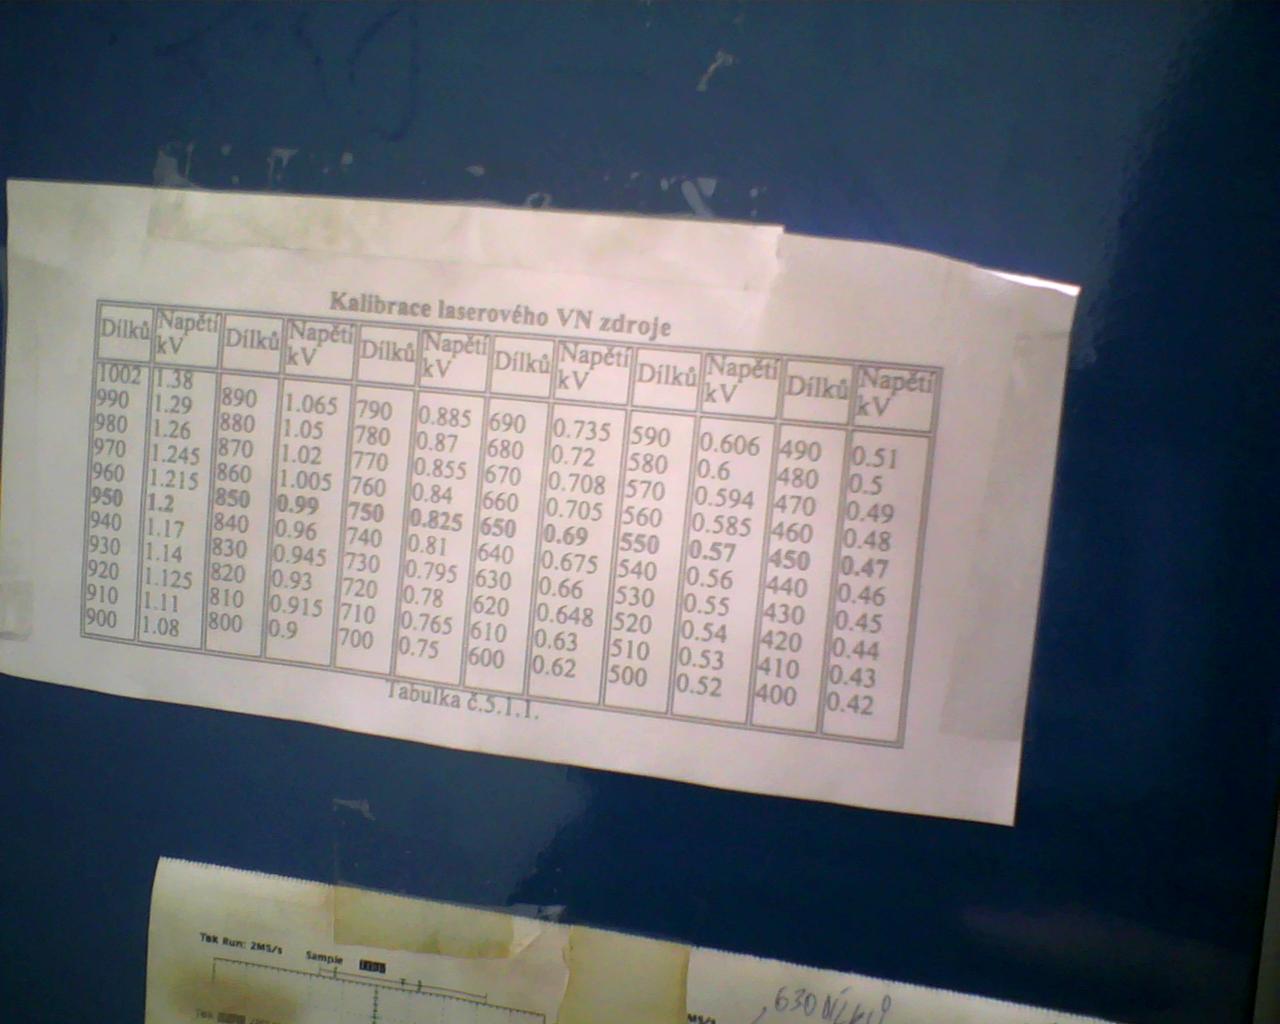 Kalibrace laserového VN zdroje
Dílků Napětí kV Dílků Napětí kV Dílků Napětí kV Dílků Napětí kV Dílků Napětí kV Dílků Napětí kV
1002 1.38
990 1.29 890 1.065 790 0.885 690 0.735 590 0.606 490 0.51
980 1.26 880 1.05 780 0.87 680 0.72 580 0.6 480 0.5
970 1.245 870 1.02 770 0.855 670 0.708 570 0.594 470 0.49
960 1.215 860 1.005 760 0.84 660 0.705 560 0.585 460 0.48
950 1.2 850 0.99 750 0.825 650 0.69 550 0.57 450 0.47
940 1.17 840 0.96 740 0.81 640 0.675 540 0.56 440 0.46
930 1.14 830 0.945 730 0.795 630 0.66 530 0.55 430 0.45
920 1.125 820 0.93 720 0.78 620 0.648 520 0.54 420 0.44
910 1.11 810 0.915 710 0.765 610 0.63 510 0.53 410 0.43
900 1.08 800 0.9 700 0.75 600 0.62 500 0.52 400 0.42
Tabulka č.5.1.1.
Tek Run: 2MS/s Sample
630 Dílků
Tek
MS/s